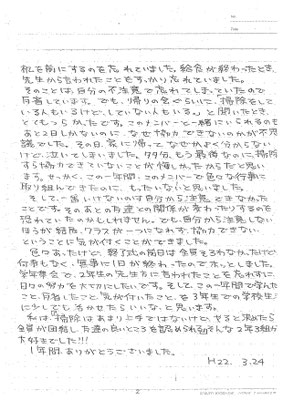 机を前にするのを忘れていました。給食が終わったとき、
先生から言われたことをすっかり忘れていました。
そのことは、自分の不注意で忘れてしまっていたので
反省しています。でも、帰りの会ぐらいに、「掃除をして
いる人もいるけど、していない人もいる。」と聞いたとき、
とてもつらかったです。このメンバーと一緒にいられるのも
あと2日しかないのに、なぜ協力できないのかが不思
議でした。その日、家に帰って、なぜかよく分からない
けど、泣いていました。多分、もう最後なのに、掃除
すら協力できていないことが悔しかったからだと思い
ます。せっかく、この一年間、このメンバーで色々な行事に
取り組んできたのに、もったいないと思いました。
そして、一番いけないのは自分から注意できなかった
ことです。そのあとの友達との関係が変わったりするのを
恐れていたのかもしれません。でも、自分から注意しない
ほうが結局、クラスが一つになれず、協力できない
ということに気が付くことができました。
色々あったけど、終了式の前日は全員そろわなかったけど
何事もなく、無事に1日が終わったのでホッとしました。
学年集会で、2年生の先生方に言われたことを忘れずに、
日々の努力を大切にしたいです。そして、この一年間で学んだ
こと、反省したこと、気が付いたこと、を3年での学校生活
に少しでも活かせたらいいな、と思います。
私は、掃除はあまり上手ではないけど、やると決めたら
全員が団結し、友達の良いところを認められる
大好きでした!!!
1年間、ありがとうございました。
H22. 3.24
2